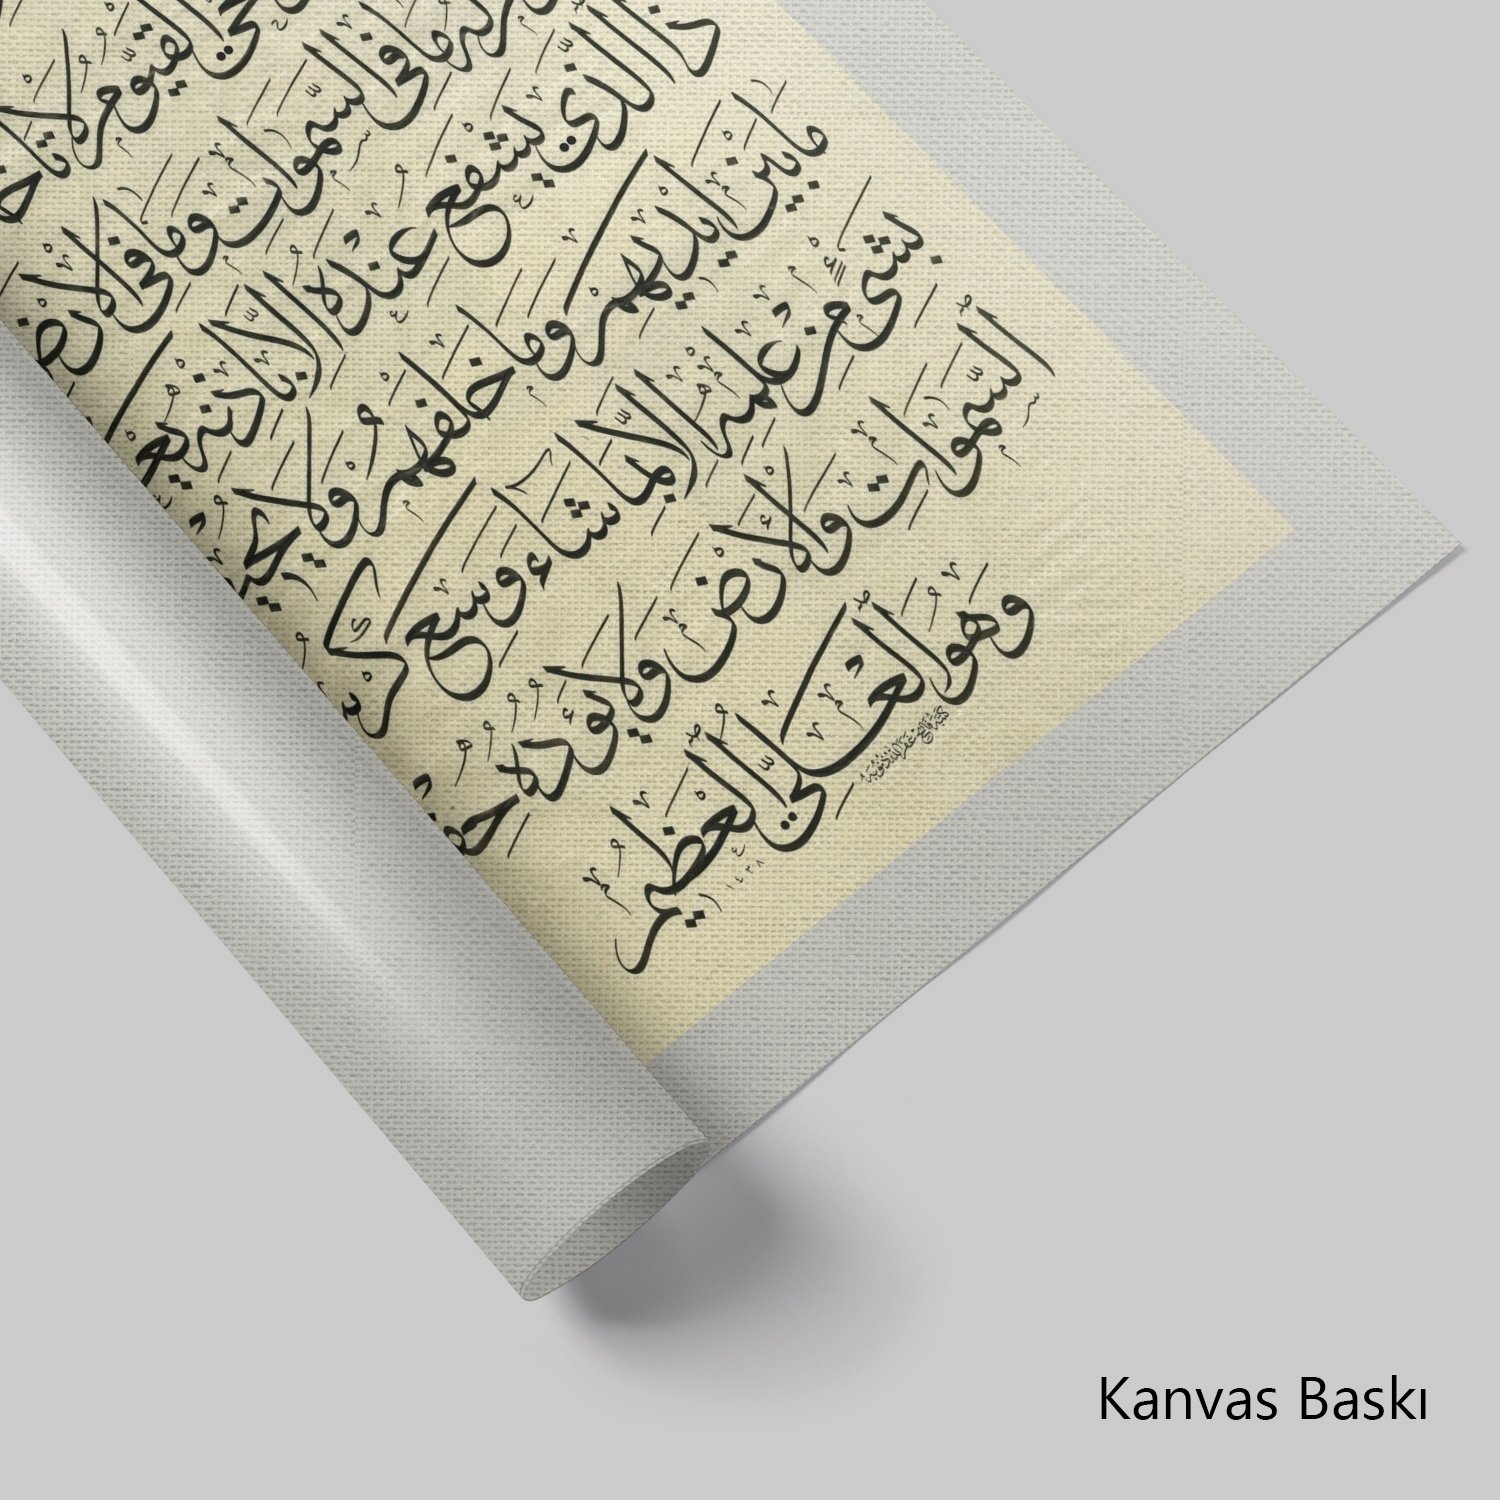 القيوم لا
ما في السموات وما في الارض
ذا الذي يشفع عنده الا باذنه
ما بين ايديهم وما خلفهم ولا
بشيء من علمه الا بما شاء وسع
السموات والارض ولا يؤده
وهو العلي العظيم
١٤٣٨
Kanvas Baskı